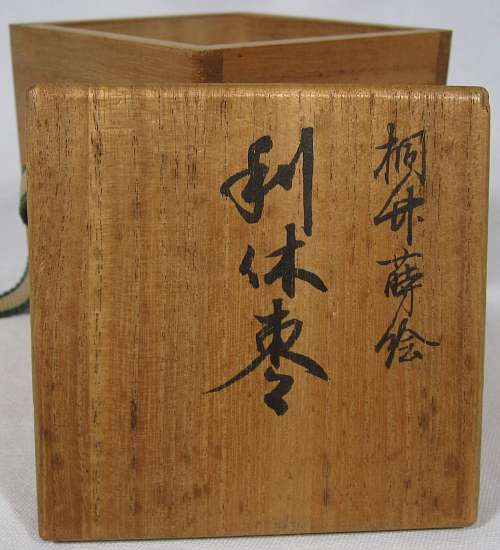 桐竹蒔絵
利休棗